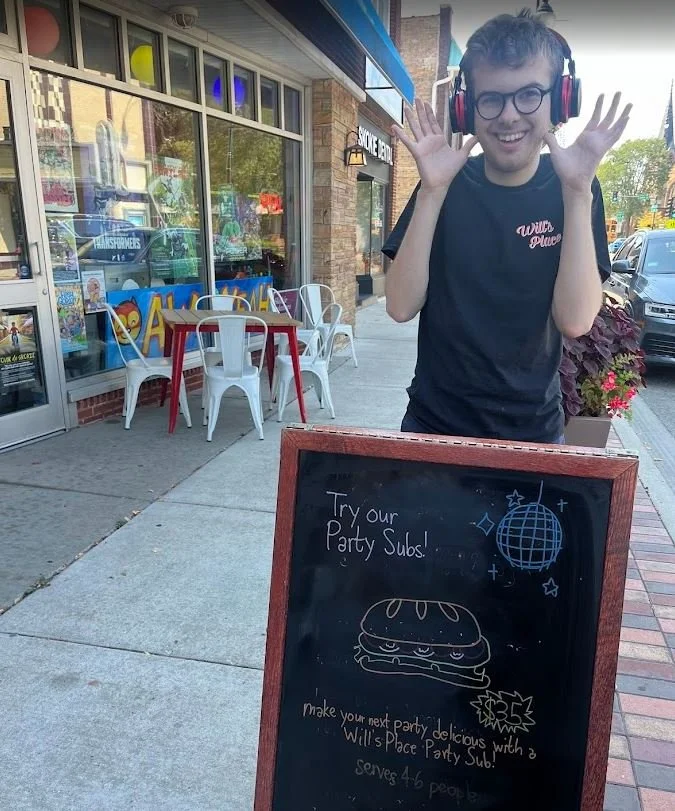 SKOKIE DENTAL
Will's
Place
TRANSFORMERS
Try our
Party Subs!
$35
make your next party delicious with a
Will's Place Party Sub!
serves 4-6 people